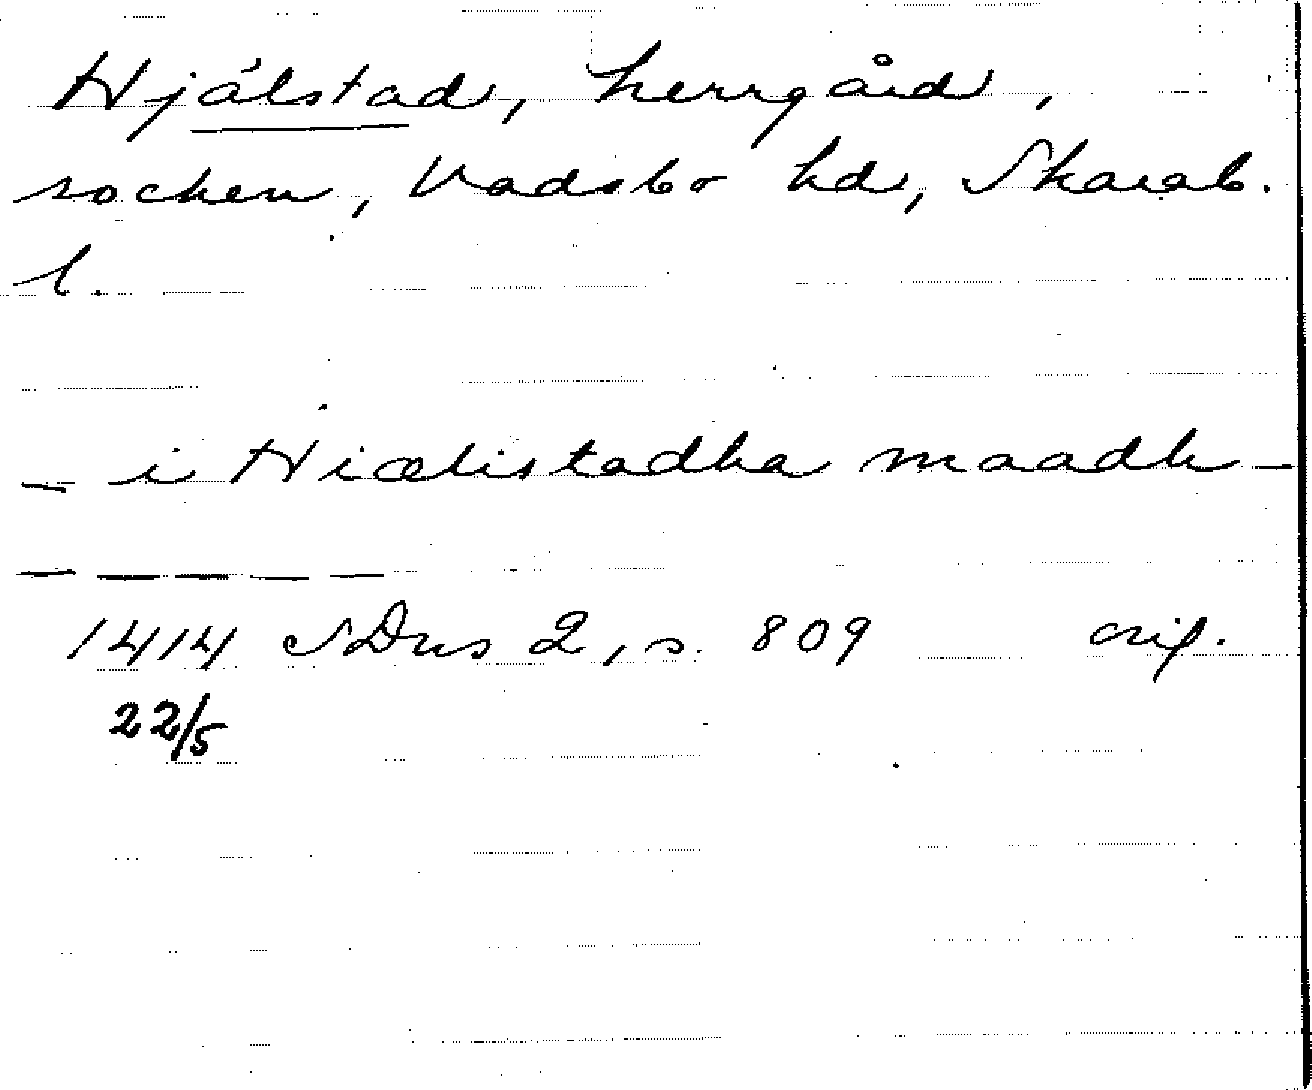 Hjälstad, herrgård,
socken, Vadsbo hd, Skarab.
l.
– i Hiælistadha maadh –
– – – – –
1414 SDns 2, s. 809 orig.
22/5